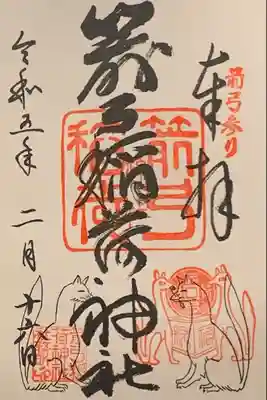 奉拝
箭弓参り
箭弓稲荷神社
箭弓
稲荷
令和五年 二月 十六日